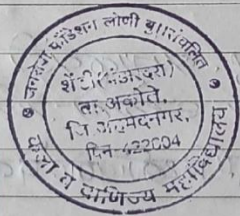 जनसेवा फौंडेशन लोणी बु॥ संचलित
शेंडी (भंडारदरा)
ता. अकोले,
जि. अहमदनगर.
पिन-422004
कला व वाणिज्य महाविद्यालय